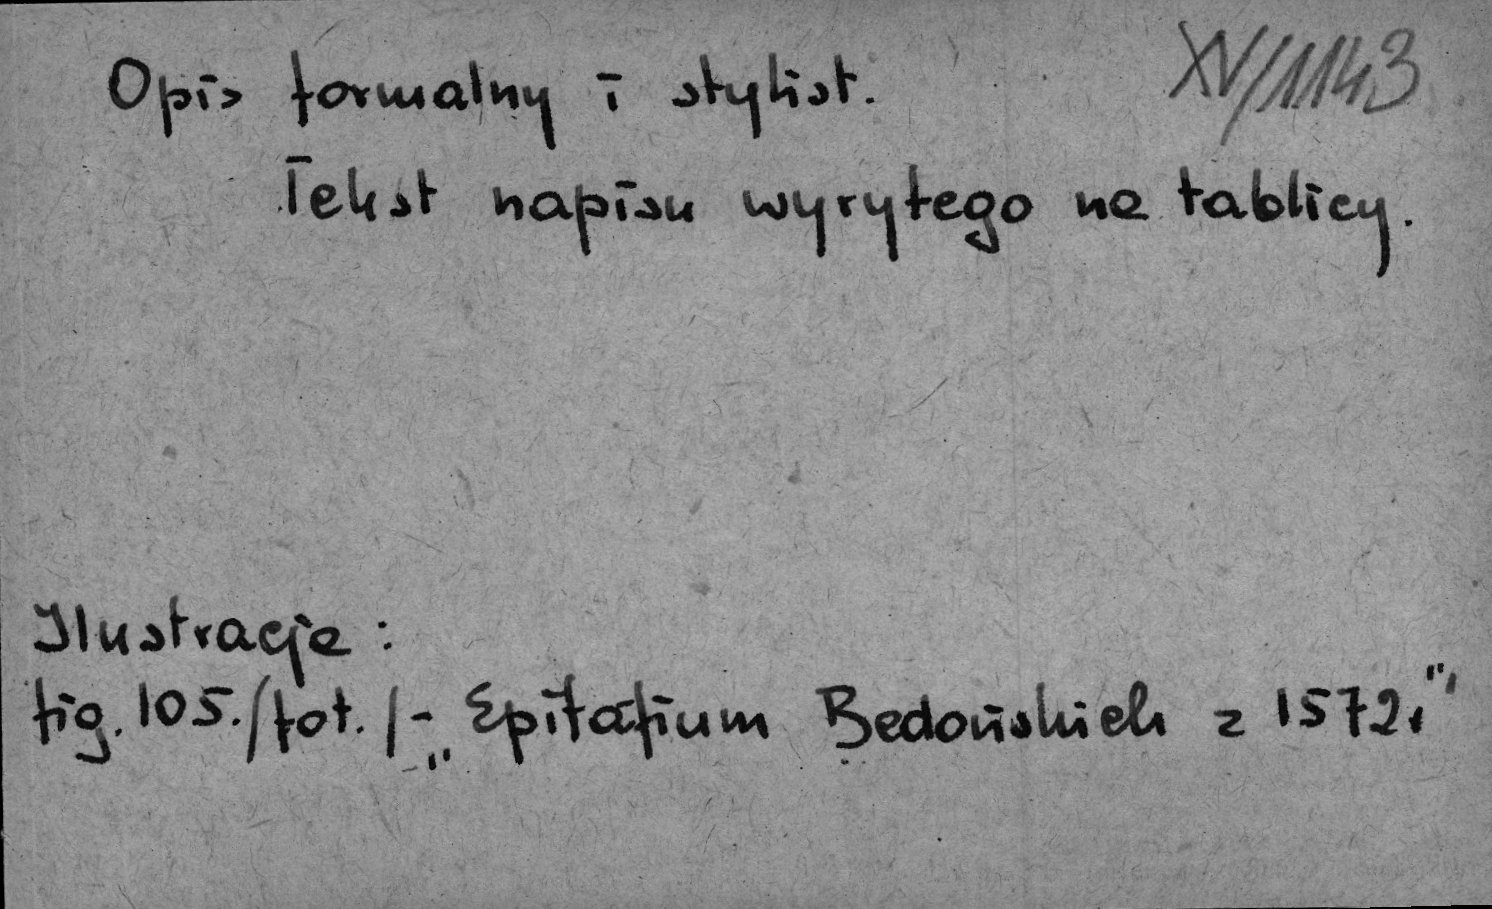 XV/1143
Opis formalny i stylist.
Tekst napisu wyrytego na tablicy.
Ilustracje :
fig. 105./fot./- „Epitafium Bedońskich z 1572r"